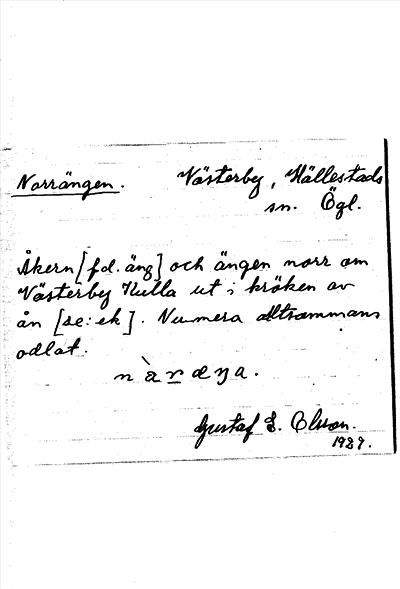 Norrängen. Västerby, Hällestads
sn. Ögl.
Åkern [fd. äng] och ängen norr om
Västerby Kulla ut i kröken av
ån [se: ek]. Numera alltsammans
odlat.
nàræŋa.
Gustaf E. Olsson.